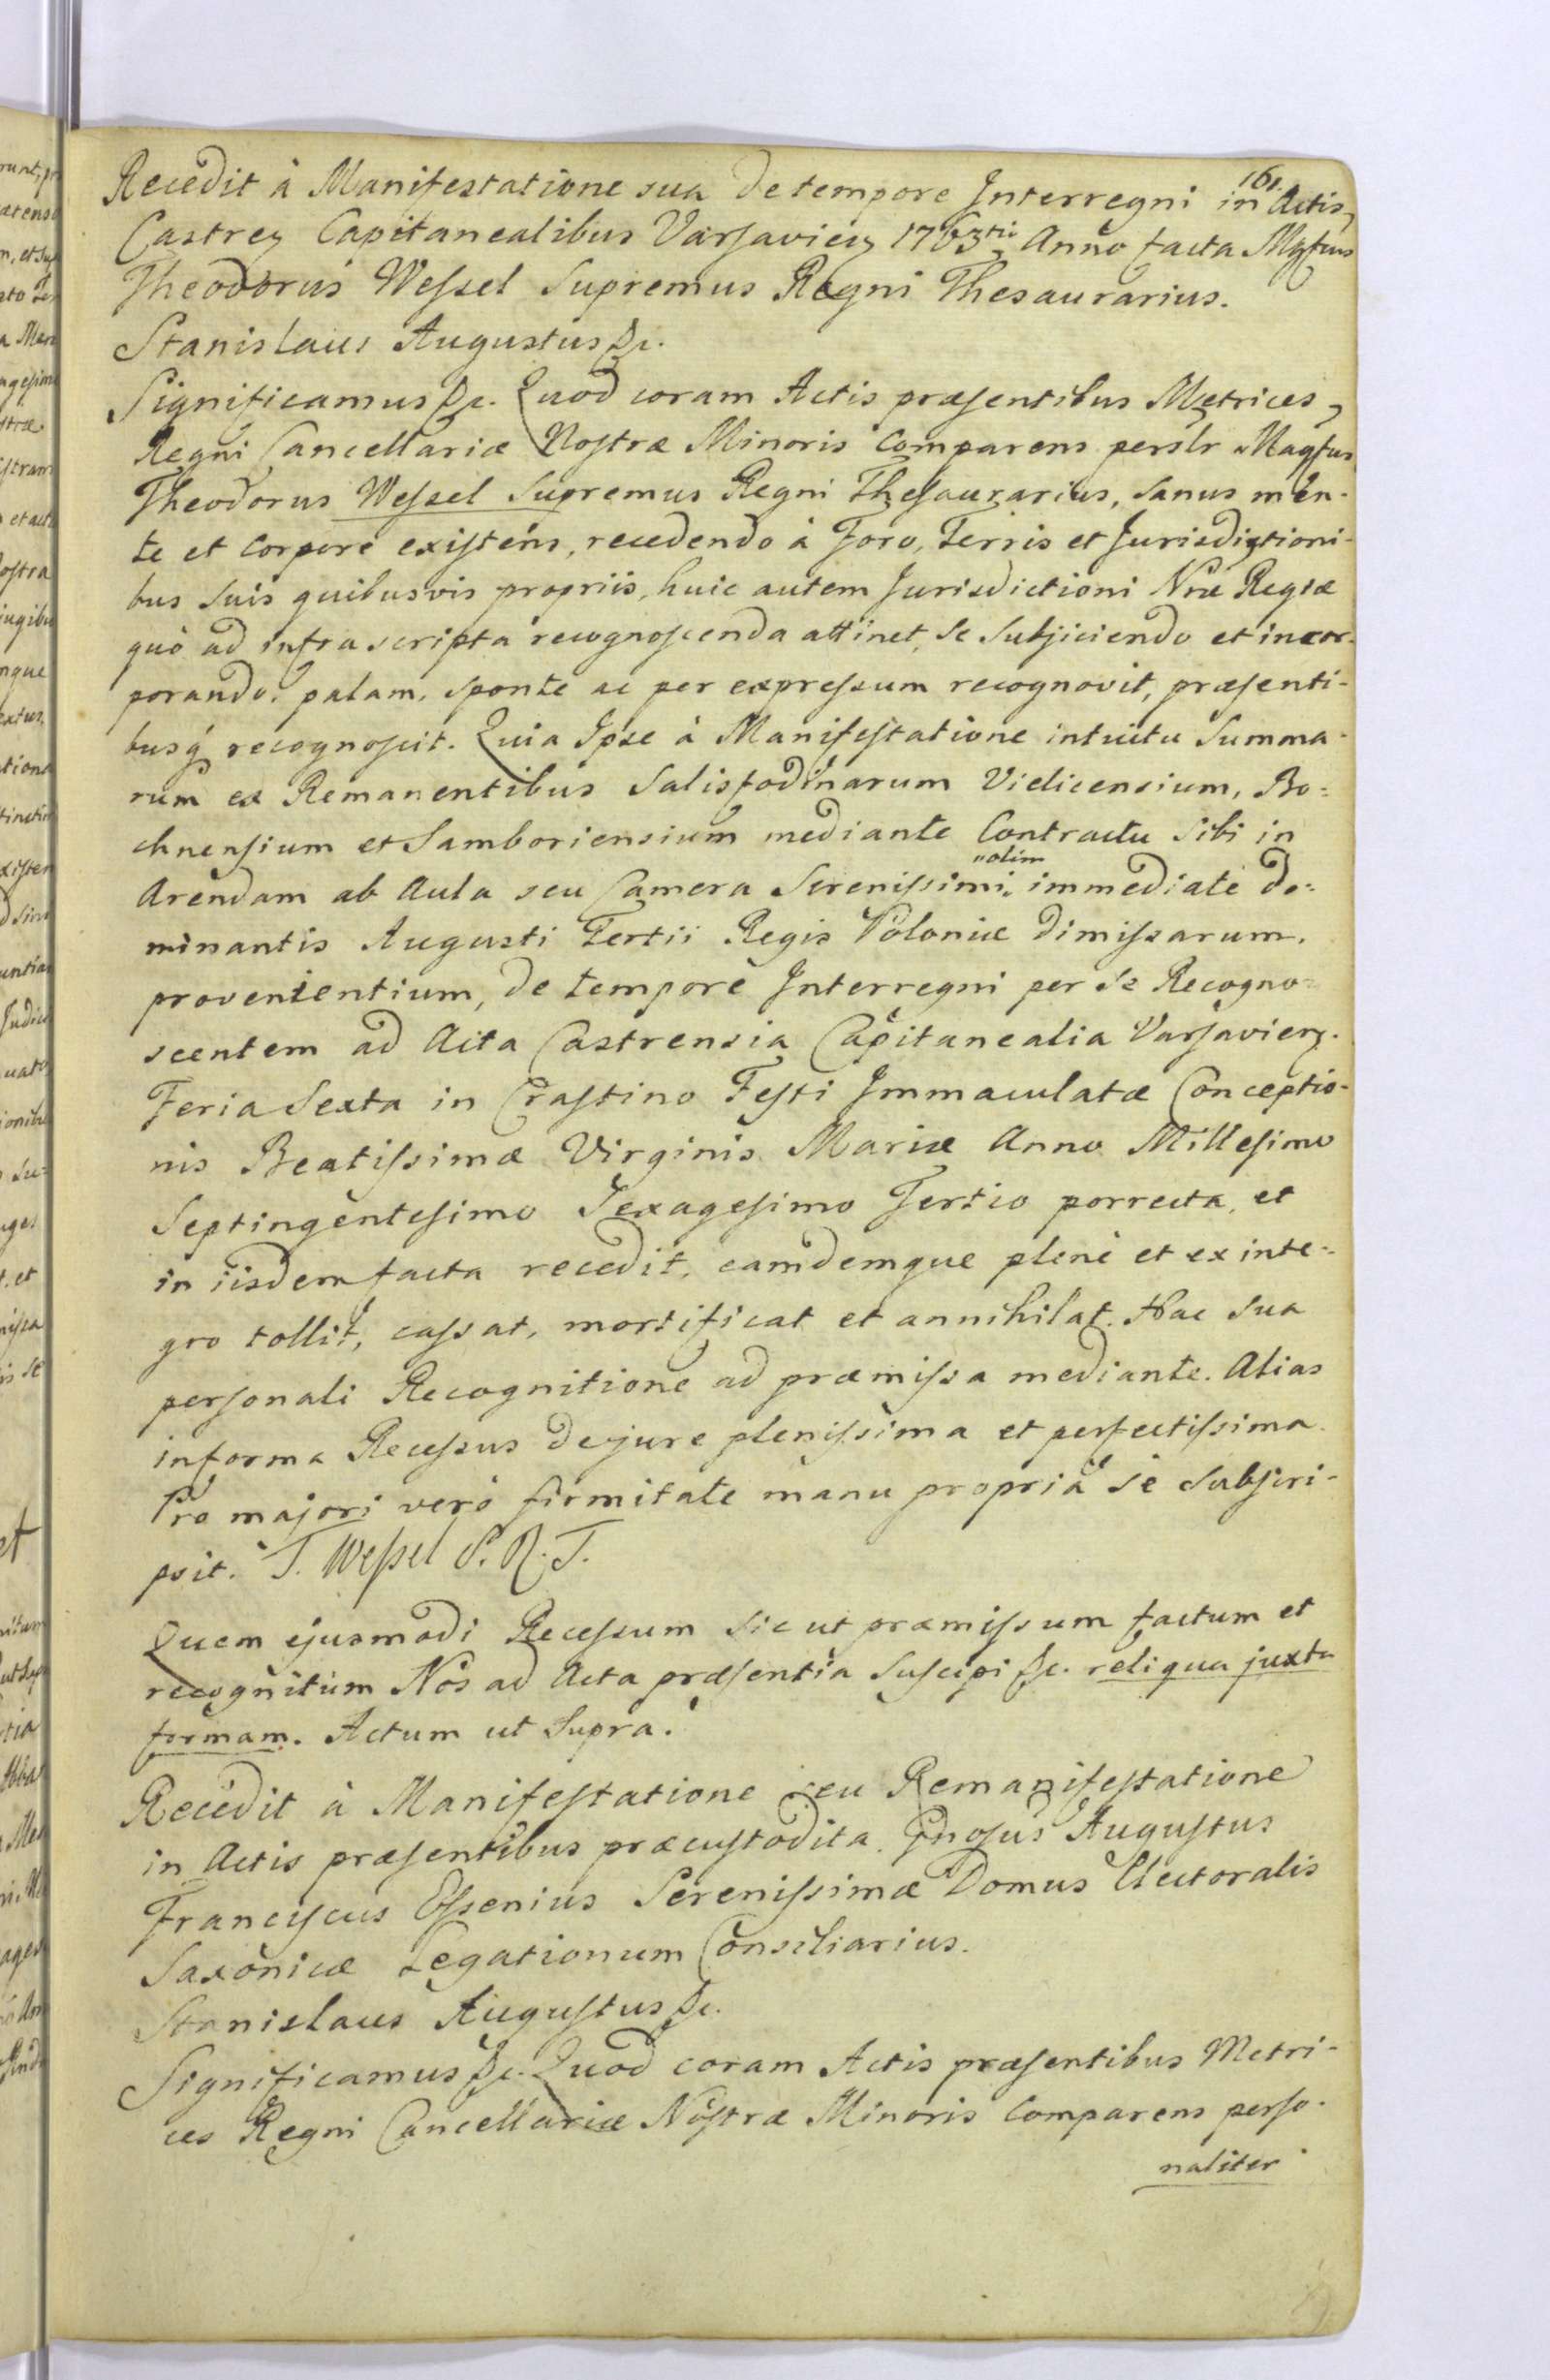 161.
Recedit à Manifestatione sua de tempore Interregni in Actis
Castren Capitanealibus Varsavien 1763tio Anno facta Mgfcus
Theodorus Wessel Supremus Regni Thesaurarius.
Stanislaus Augustus &c.
Significamus &c. Quod coram Actis præsentibus Metrices
Regni Cancellariæ Nostræ Minoris Comparens perslr Magfcus
Theodorus Wessel Supremus Regni Thesaurarius, sanus men-
te et corpore existens, recedendo à Foro, Terris et Jurisdictioni-
bus suis quibusvis propriis, huic autem Jurisdictioni Nræ Regiæ
quò ad infrascripta recognoscenda attinet, se subjiciendo et incor-
porando: palam, sponte ac per expressum recognovit, præsenti-
busq́ recognoscit. Quia Ipse à Manifestatione intuitu Summa-
rum ex Remanentibus Salisfodinarum Vielicensium, Bo=
chnensium et Samboriensium mediante Contractu sibi in
Arendam ab Aula seu Camera Serenissimi "olim immediate do=
minantis Augusti Tertii Regis Poloniæ dimissarum,
provenientium, de tempore Interregni per se Recogno=
scentem ad Acta Castrensia Capitanealia Varsavien.
Feria Sexta in Crastino Festi Immaculatæ Conceptio-
nis Beatissimæ Virginis Mariæ Anno Millesimo
Septingentesimo Sexagesimo Tertio porrecta, et
in iisdem facta recedit, eamdemque plenè et ex inte=
gro tollit, cassat, mortificat et annihilat. Hac sua
personali Recognitione ad præmissa mediante. Alias
in forma Recessus de jure plenissima et perfectissima.
Pro majori verò firmitate manu propriâ se subscri-
psit. T. Wessel S. R. T.
Quem ejusmodi Recessum sic ut præmissum factum et
recognitum Nos ad Acta præsentia suscipi &c. reliqua juxta
formam. Actum ut Supra.
Recedit à Manifestatione seu Remanifestatione
in Actis præsentibus præcustodita. Gnosus Augustus
Franciscus Essenius Serenissimæ Domus Electoralis
Saxonicæ Legationum Consiliarius.
Stanislaus Augustus &c.
Significamus &c. Quod coram Actis præsentibus Metri-
ces Regni Cancellariæ Nostræ Minoris Comparens perso-
naliter